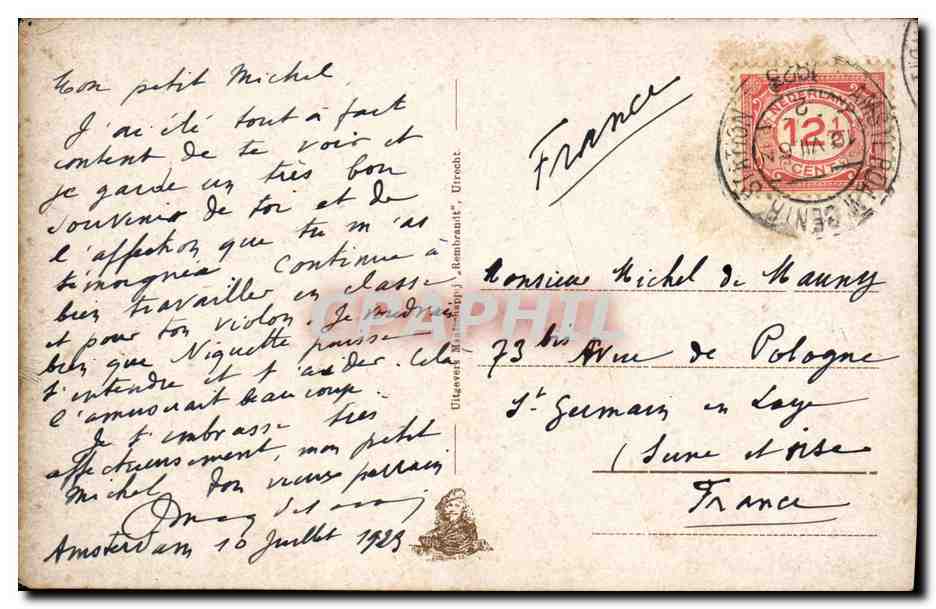 Mon petit Michel
J'ai été tout à fait
content de te voir et
je garde un très bon
souvenir de toi et de
l'affection que tu m'as
témoignée Continue à
bien travailler en classe
et pour ton violon. Je voudrais
bien que Niquette puisse
t'entendre et t'aider. Cela
l'amuserait beaucoup.
Je t'embrasse très
affectueusement, mon petit
Michel Ton vieux parrain
Amsterdam 10 Juillet 1923
Uitgevers Maatschappij „Rembrandt", Utrecht.
France
NEDERLAND
12½
CENT
AMSTERDAM CENTR. STATION
Monsieur Michel de Mauny
73 bis Avue de Pologne
St Germain en Laye
(Seine et Oise
France
CPAPHIL